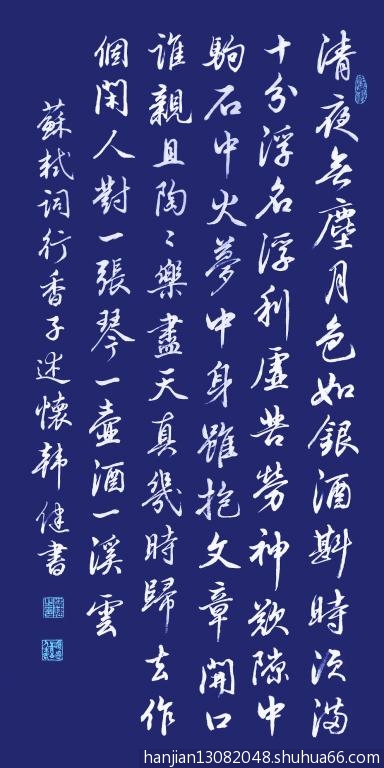 清夜無塵月色如銀酒斟時須滿
十分浮名浮利虛苦勞神歎隙中
駒石中火夢中身雖抱文章開口
誰親且陶〻樂盡天真幾時歸去作
個閑人對一張琴一壺酒一溪雲
蘇軾詞行香子述懷韩健書
hanjian13082048.shuhua66.com